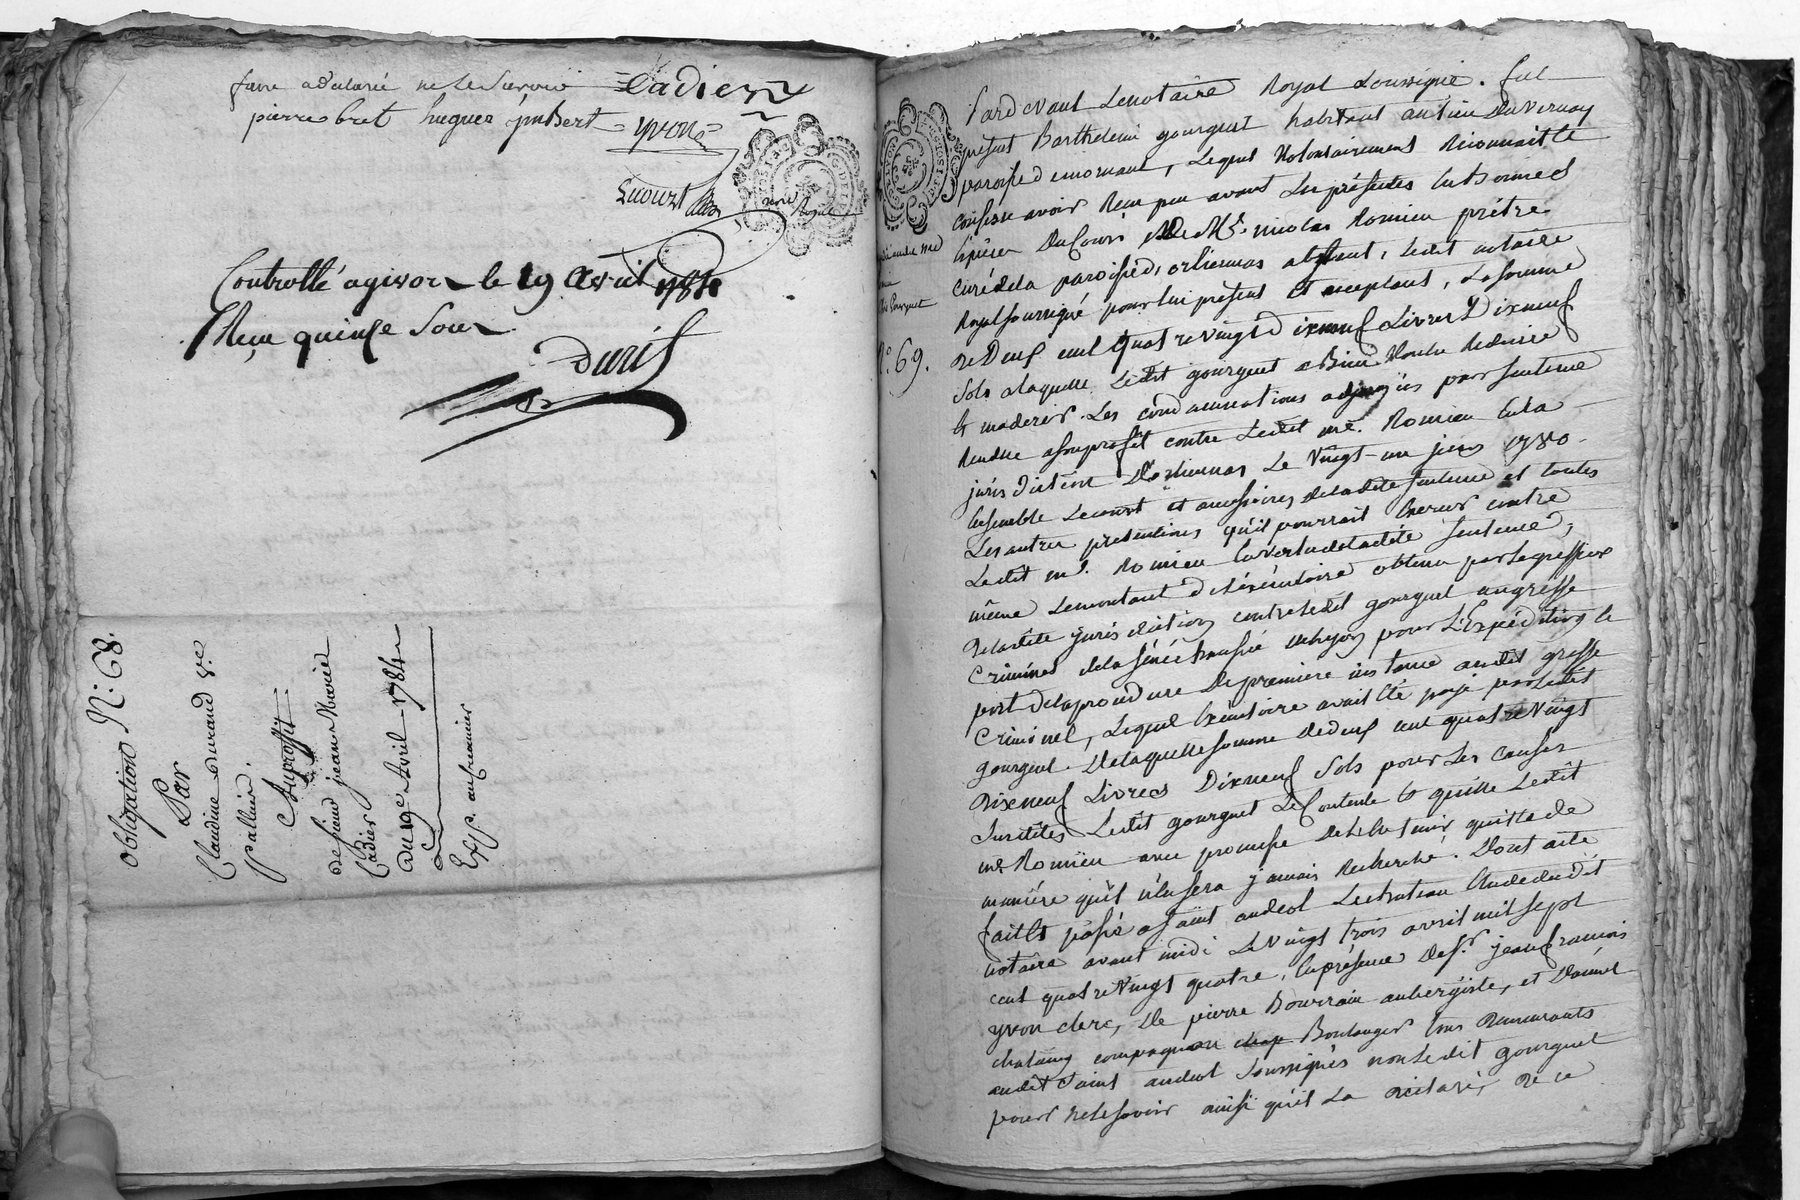 faire a declaré ne le savoir Cadier
pierre bret hugues jmbert yvon
Royal
Controllé a givors le 19 avril 1784
Reçu quinse sous
Duris
obligation N.° 68.
Par
Claudine durand v.e
palluis.
Au proffit
de sieur jean Marie
Cadier
du 19.e Avril 1784
Exp.
N.° 69.
Pardevant Lenotaire Royal soussigné. fut
présent Barthelemi gourguet habitant au lieu Duvernay
paroisse demornant, Lequel Volontairement Reconnait et
confesse avoir Reçu peu avant Les présentes En bonnes
Espèces Ducours De M.e nicolas Romieu prêtre
curé dela paroisse d'orlienas absent, Ledit notaire
Royal soussigné pour lui présent Et acceptant, La somme
de Deux cent quatrevingt dixneuf Livres Dixneuf
sols alaquelle Ledit gourguet a Bien Voulu Reduire
Et moderer Les condamnations adjugées par sentence
Rendue a son profit contre Ledit me. Romieu En la
jurisdiction D'orlienas Le Vingt-un juin 1780
Ensemble Lecourt et accessoires deladite sentence et toutes
Les autres pretentions qu'il pourrait Exercer contre
Ledit me. Romieu En vertu deladite sentence,
même Lemontant del'exécutoire obtenu par Legreffier
deladite jurisdiction contre Ledit gourguet au greffe
criminel dela sénéchaussée de lyon pour L'Expédition Et
port delaprocedure De premiere instance audit greffe
criminel, Lequel Exécutoire avait Eté payé par Ledit
gourguet. Delaquelle somme de deux cent quatrevingt
dixneuf Livres Dixneuf sols pour Les causes
susdites Ledit gourguet Se Contente Et quitte Ledit
me Romieu avec promesse de L'En tenir quitte de
manière qu'il n'En sera jamais Recherché. Dont acte
fait Et passé a saint andeol Le chateau Etude dudit
notaire avant midi Le Vingt trois avril mil sept
cent quatreVingt quatre, En présence de s.r jean françois
yvon clerc, De pierre Bourrain aubergiste, et Daniel
compagnon Boulanger tous Demeurants
audit saint andeol soussignés non Ledit gourguet
pour ne le savoir ainsi qu'il L'a déclaré, De ce